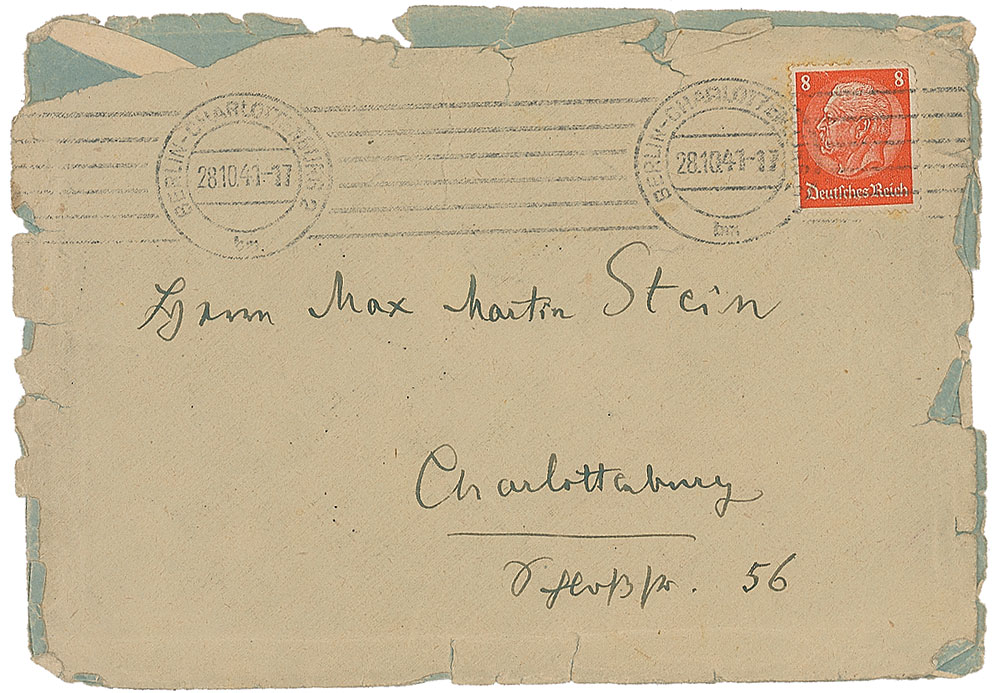 BERLIN-CHARLOTTENBURG 2
28.10.41-17
bm
BERLIN-CHARLOTTENBURG
28.10.41-17
bm
8 8
Deutsches Reich
Herrn Max Martin Stein
Charlottenburg
Schloßstr. 56